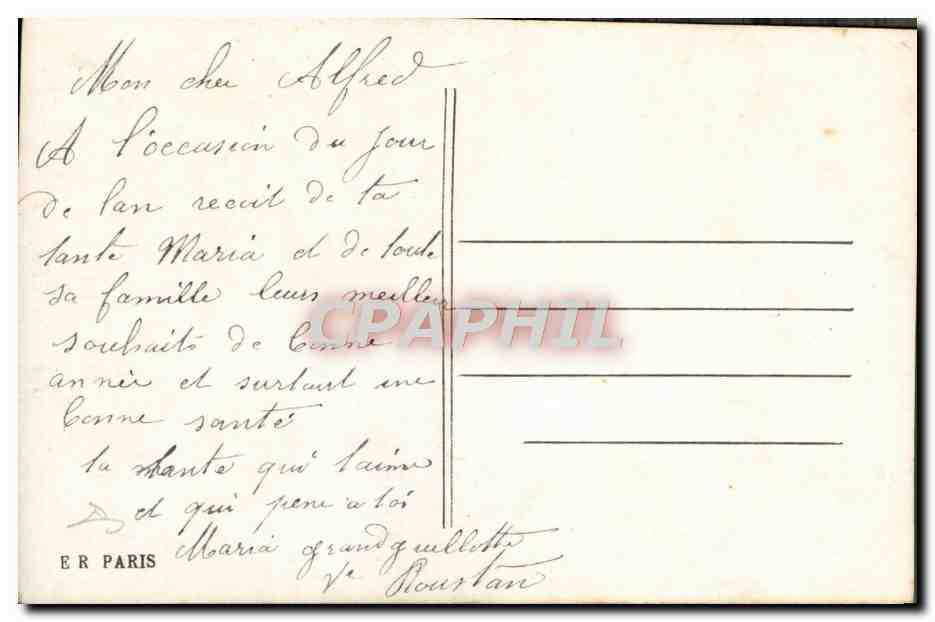 Mon cher Alfred
A l'occasion du jour
de lan recoit de ta
tante Maria et de toute
sa famille leurs meilleur
souhaits de bonne
année et surtout une
bonne santé
ta tante qui taime
et qui pense a toi
Maria grandguillotte
Ve Roustan
E R PARIS
CPAPHIL